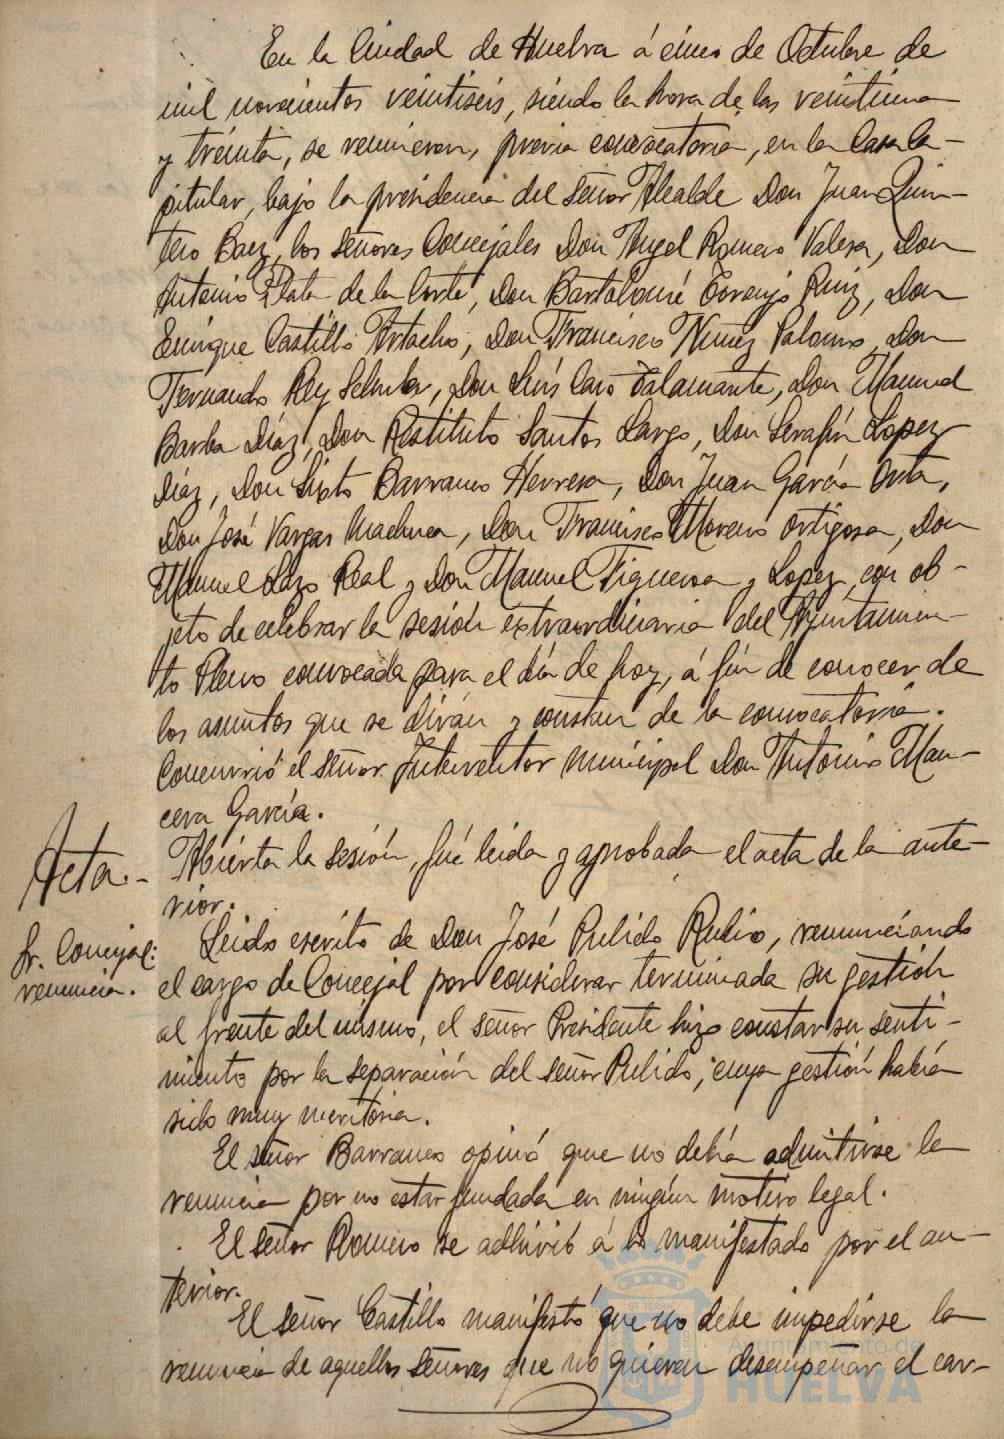 En la Ciudad de Huelva á cinco de Octubre de
mil novecientos veintiseis, siendo la hora de las veintiuna
y treinta, se reunieron, previa convocatoria, en la Casa Ca-
pitular, bajo la presidencia del señor Alcalde Don Juan Quin-
tero Baez, los señores Concejales Don Angel Romero Valera, Don
Antonio Plata de la Corte, Don Bartolomé Toronjo Ruiz, Don
Enrique Castillo Artacho, Don Francisco Nuñez Palomo, Don
Fernando Rey Don Luís Caro Talamante, Don Manuel
Barba Díaz, Don Restituto Santos Largo, Don Serafín Lopez
Díaz, Don Sixto Barranco Herrera, Don Juan García Orta,
Don José Vargas Machuca, Don Francisco Moreno Ortigosa, Don
Manuel Lazo Real y Don Manuel Figueroa y Lopez, con ob-
jeto de celebrar la sesión extraordinaria del Ayuntamien-
to Pleno convocada para el día de hoy, á fín de conocer de
los asuntos que se dirán y constan de la convocatoria.
Concurrió el señor Interventor municipal Don Antonio Man-
cera García.
Acta.-
Abierta la sesión, fué leida y aprobada el acta de la ante-
rior.
Sr. Concejal:
renuncia.
Leido escrito de Don José Pulido Rubio, renunciando
el cargo de Concejal por considerar terminada su gestión
al frente del mismo, el señor Presidente hizo constar su senti-
miento por la separación del señor Pulido, cuya gestión había
sido muy meritoria.
El señor Barranco opinó que no debía admitirse la
renuncia por no estar fundada en ningún motivo legal.
El señor Romero se adhirió á lo manifestado por el an-
terior.
El señor Castillo manifestó que no debe impedirse la
renuncia de aquellos señores que no quieran desempeñar el car-
Ayuntamiento de
HUELVA